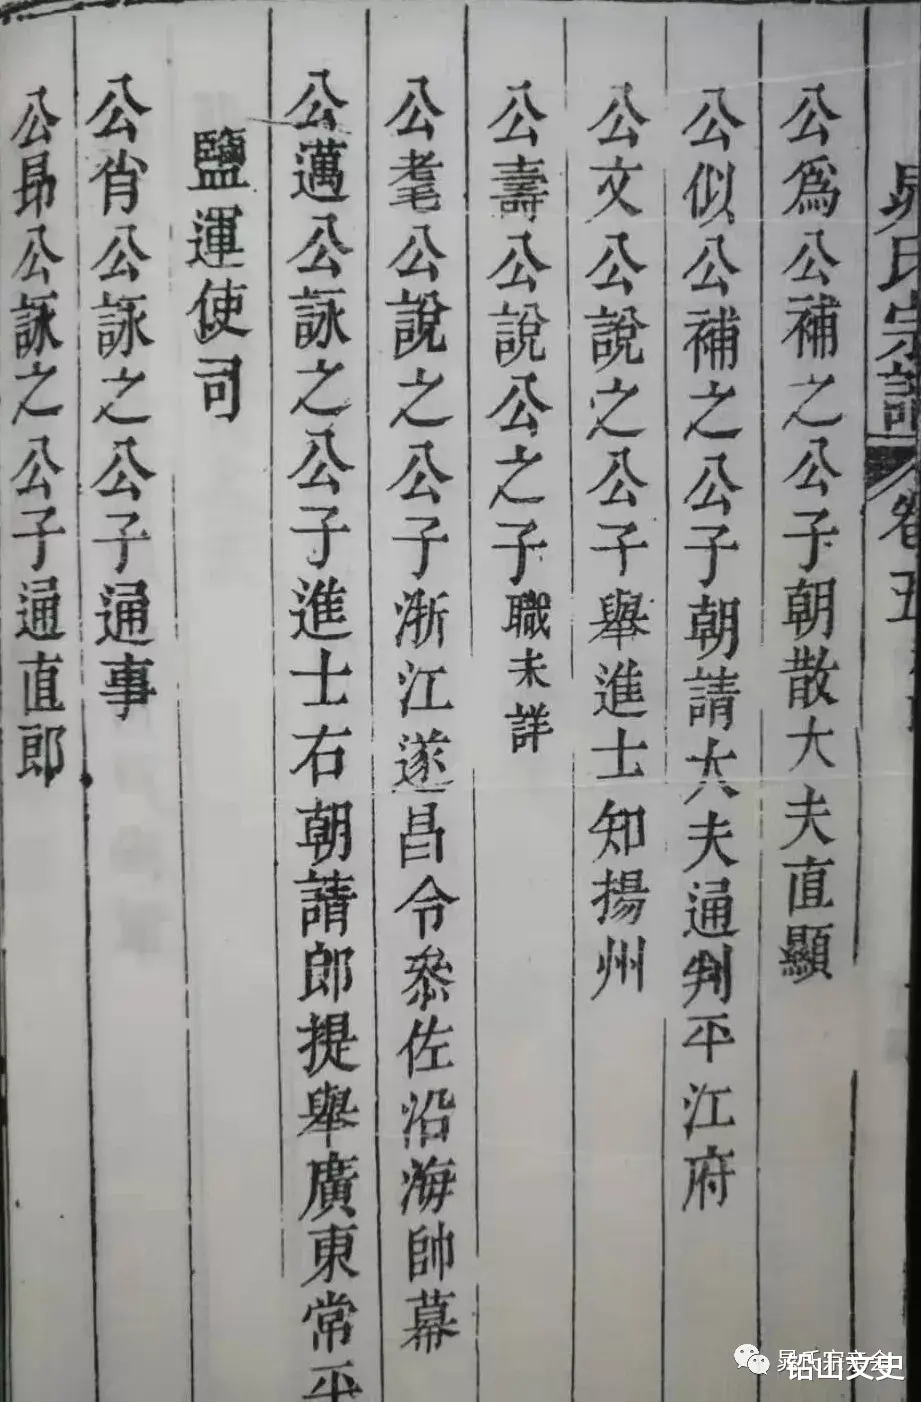 晁氏宗譜 卷五
公爲公補之公子朝散大夫直顯
公似公補之公子朝請大夫通判平江府
公文公說之公子舉進士知揚州
公壽公說公之子職未詳
公耄公說之公子浙江遂昌令叅佐沿海帥幕
公邁公詠之公子進士右朝請郎提舉廣東常平
鹽運使司
公肖公詠之公子通事
公昂公詠之公子通直郎
铅山文史